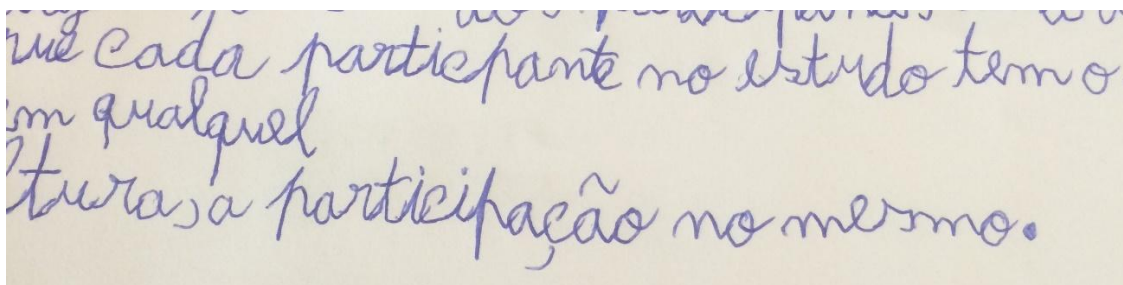 que cada particpante no estudo tem o
em qualquel
ltura, a participação no mesmo.